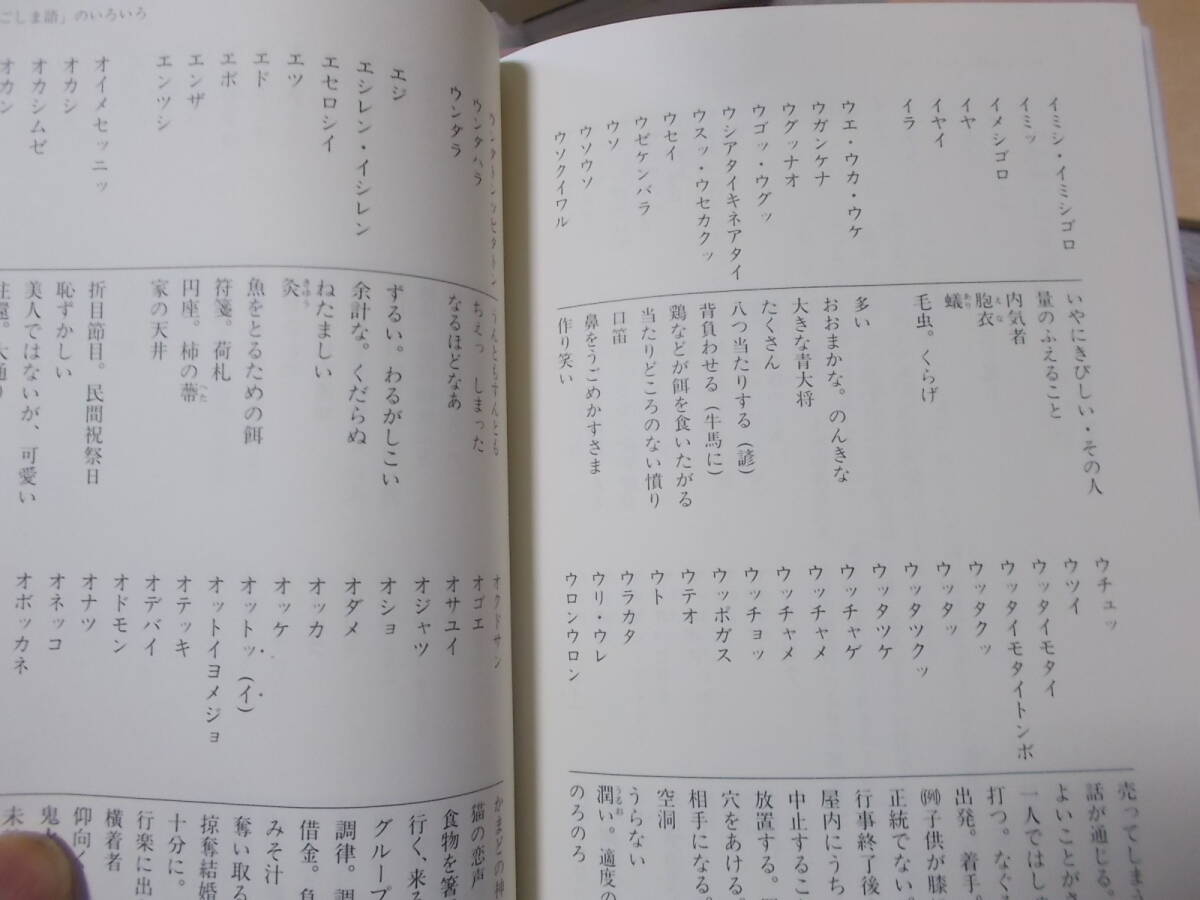 イミシ・イミシゴロ いやにきびしい・その人
イミッ 量のふえること
イメシゴロ 内気者
イヤ 胞衣 えな
イヤイ 蟻 あり
イラ 毛虫。くらげ
ウエ・ウカ・ウケ 多い
ウガンケナ おおまかな。のんきな
ウグッナオ 大きな青大将
ウゴッ・ウグッ たくさん
ウシアタイキネアタイ 八つ当たりする(諺)
ウスッ・ウセカクッ 背負わせる(牛馬に)
ウセイ 鶏などが餌を食いたがる
ウゼケンバラ 当たりどころのない憤り
ウソ 口笛
ウソウソ 鼻をうごめかすさま
ウソクイワル 作り笑い
ウチュッ 売ってしまう
ウツイ 話が通じる。
ウッタイモタイ よいことがさ
ウッタイモタイトンボ 一人ではし
ウッタクッ 打つ。なぐ
ウッタッ 出発。着手。
ウッタツクッ (例)子供が膝
ウッタツケ 正統でない。
ウッチャゲ 行事終了後
ウッチャメ 屋内にうち
ウッチャメ 中止するこ
ウッチョッ 放置する。
ウッポガス 穴をあける。
ウテオ 相手になる。
ウト 空洞
ウラカタ うらない
ウリ・ウレ 潤い。適度の うるお
ウロンウロン のろのろ
ごしま語」のいろいろ
うんともすんとも
ウンタハラ ちぇっ しまった
ウンタラ なるほどなあ
エジ ずるい。わるがしこい
エシレン・イシレン 余計な。くだらぬ
エセロシイ ねたましい
エツ 灸 きゅう
エド 魚をとるための餌
エボ 符箋。荷札
エンザ 円座。柿の蔕 へた
エンツシ 家の天井
オイメセッニッ 折目節目。民間祝祭日
オカシ 恥ずかしい
オカシムゼ 美人ではないが、可愛い
オカン 往還。大通り
オクドサン かまどの神
オゴエ 猫の恋声
オサユイ 食物を箸
オジャツ 行く、来る
オショ グループ
オダメ 調律。調
オッカ 借金。負
オッケ みそ汁
オットッ(イ) 奪い取る
オットイヨメジョ 掠奪結婚
オテッキ 十分に。
オデバイ 行楽に出
オドモン 横着者
オナツ 仰向
オネッコ 鬼
オボッカネ 未